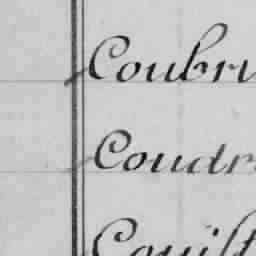 Coubr
Coudr
Couilt